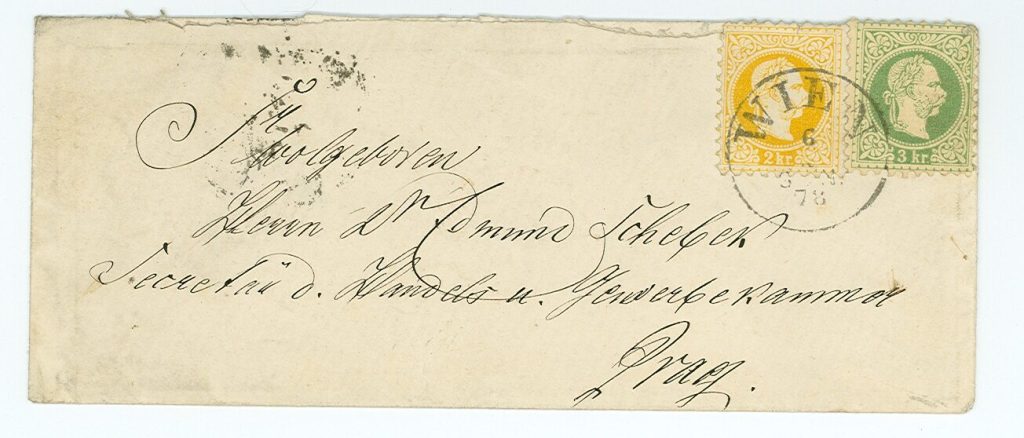 Sr Wolgeboren
Herrn Dr Edmund Schebek
Secretär d. Handels u. Gewerbekammer
Prag.
2 kr
3 kr
WIEN
6
78